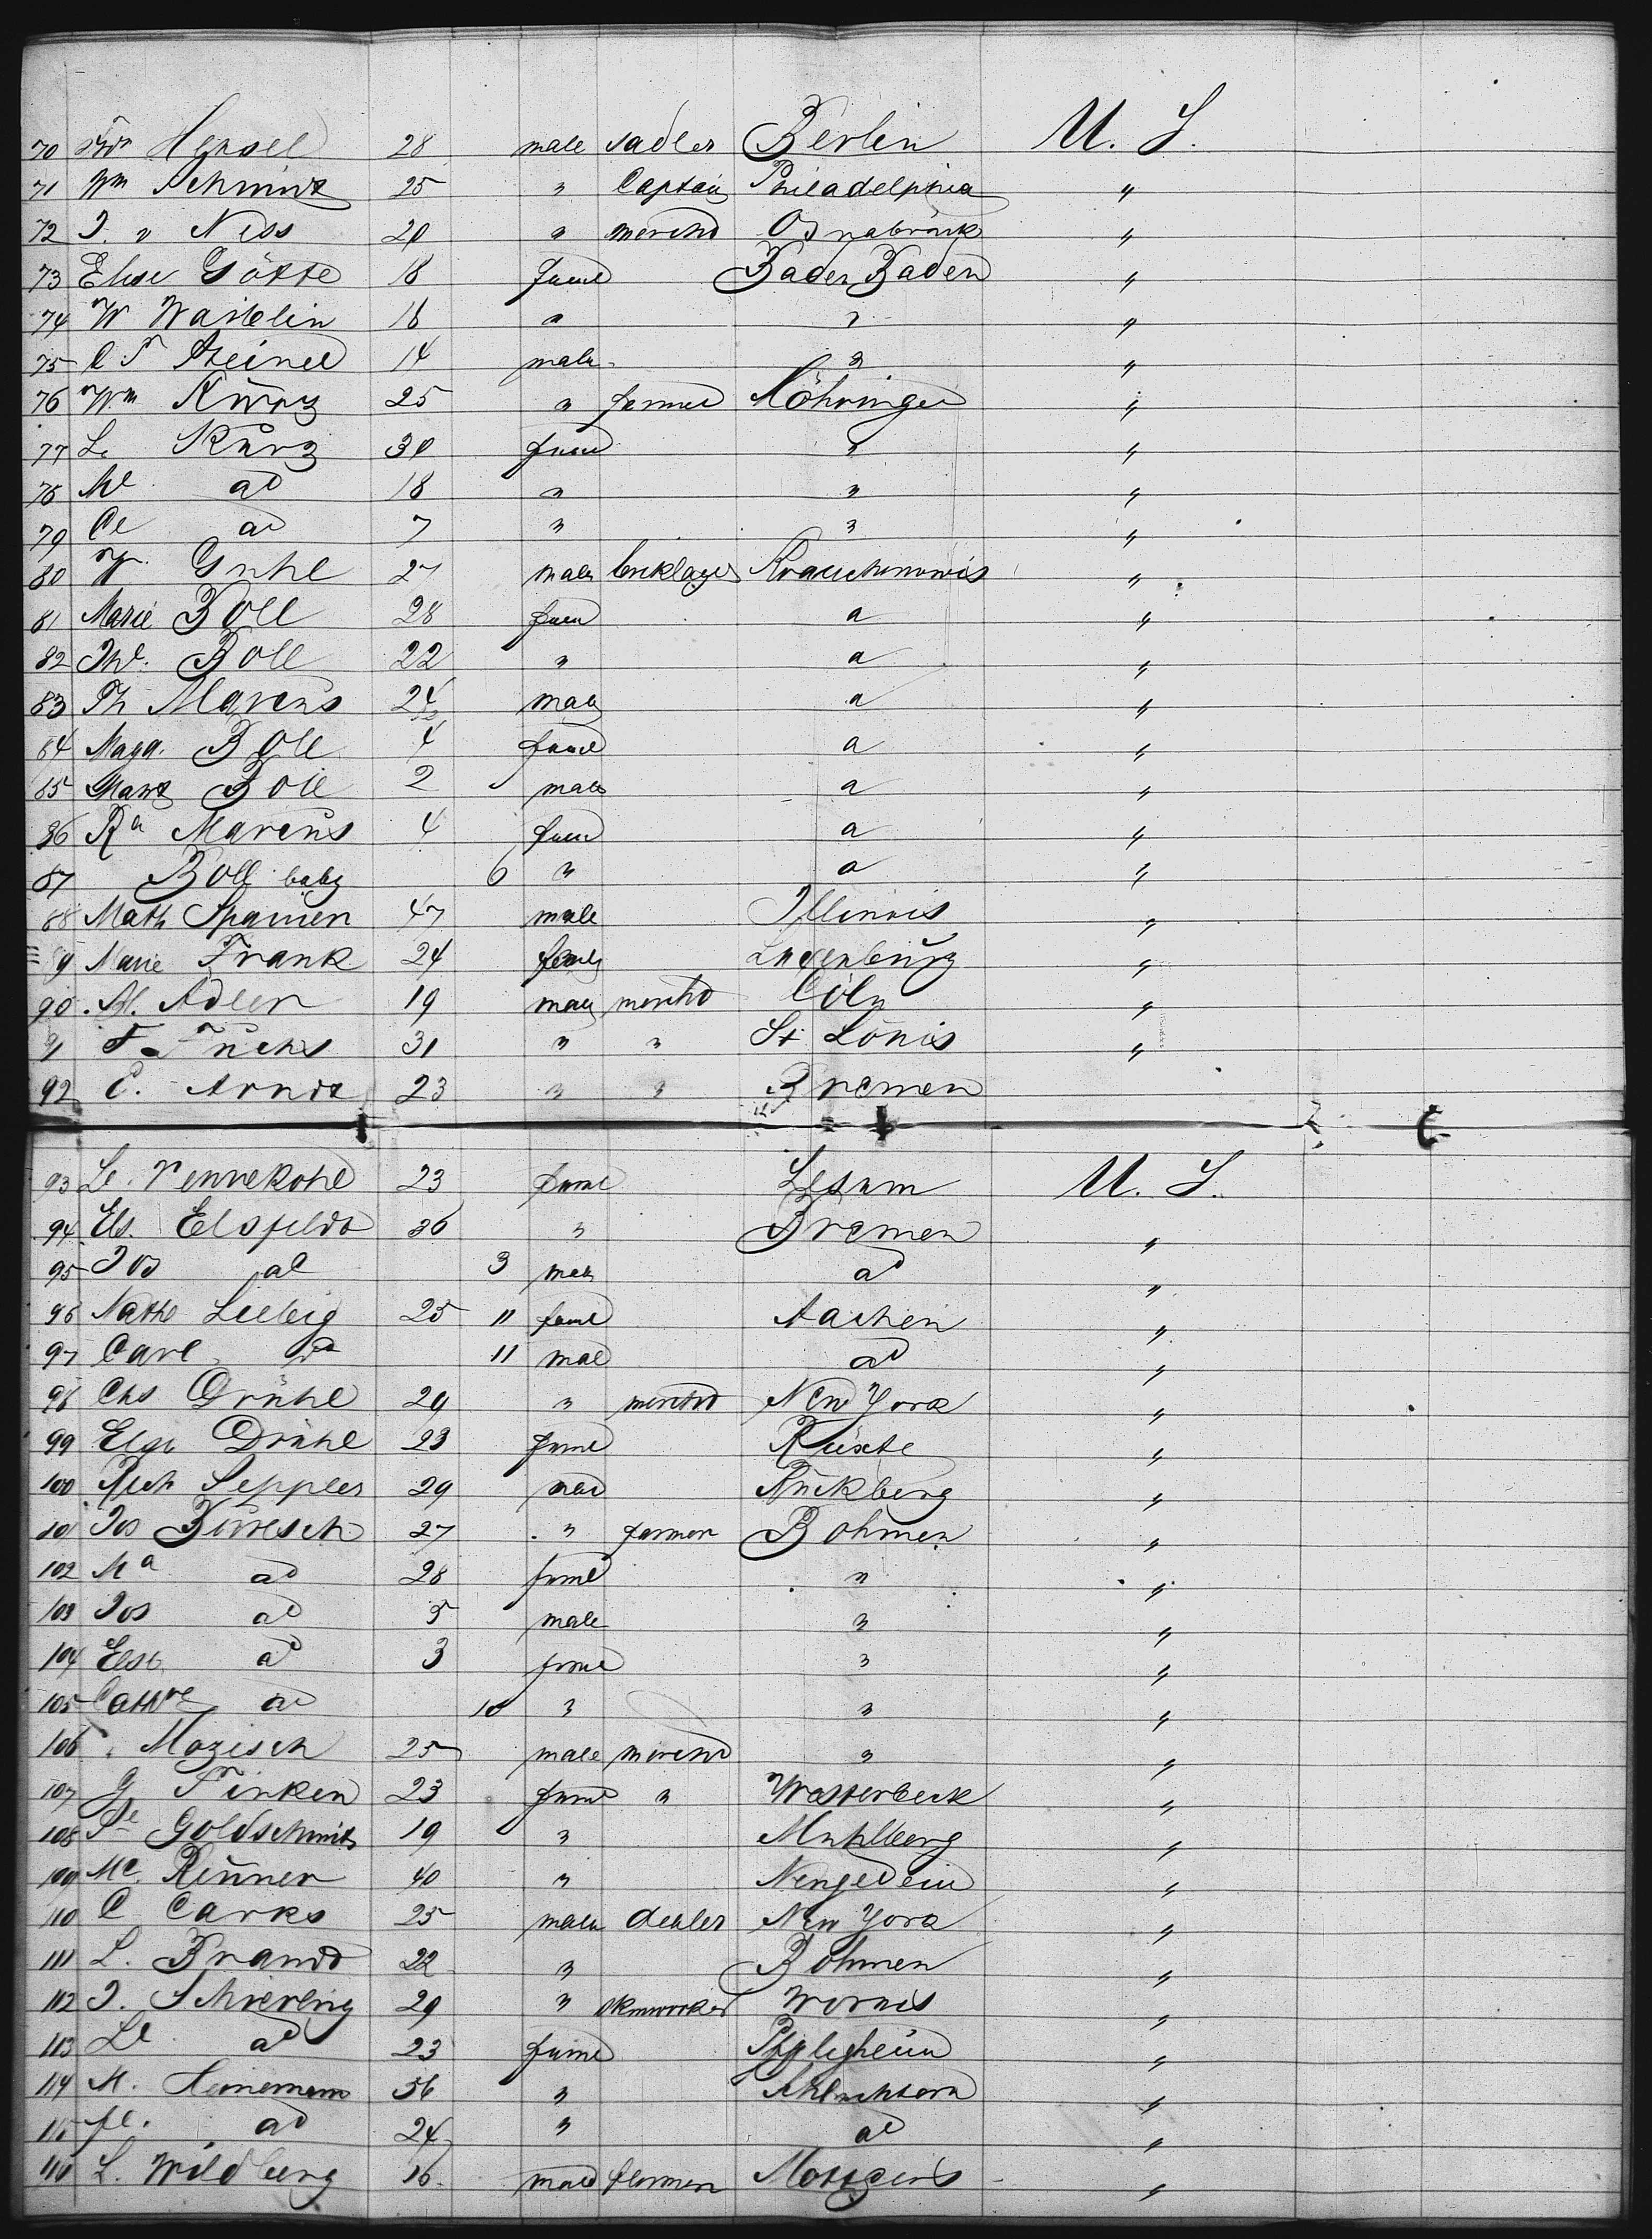 70 Hensel 28 male sadler Berlin U. S.
71 Wm Schmidt 25 " Captain Philadelphia "
72 J. v Ness 20 " mercht Osnabrück "
73 Elise Götte 18 feml Baden Baden "
74 W 18 " " "
75 C F Steinel 14 male " "
76 Wm Kürz 25 " farmer Möhringen "
77 Le Kürz 30 feml " "
78 Me do 18 " " "
79 Ce do 7 " " "
80 Guhl 27 male bricklayer "
81 Marie Boll 28 fem "
82 The. Boll 22 " "
83 Th Marcus 24 male "
84 Maga. Boll 4 femel "
85 Boll 2 male "
86 Ra Marcus 4 fem "
87 Boll baby 6 " "
88 Math 47 male Illinois "
89 Marie Frank 24 Luxenbürg "
90 M. Adler 19 male mercht Cöln "
91 F. Fuchs 31 " " St Louis "
92 C. Arndt 23 " " Bremen
93 Le. Vennekohl 23 feml Lesum U. S.
94 Els. Elsfeldt 26 " Bremen "
95 Jos do 3 male do "
96 Nathe Liebig 25 11 feml Aachen "
97 Carl do 11 male do "
98 Chs Drühl 29 " mercht New York "
99 Elge Drühl 23 feml "
100 Sepples 29 male "
101 Jos 27 " farmer Bohmen "
102 Ma do 28 feml " "
103 Jos do 5 male " "
104 Else do 3 feml " "
105 Cathne do 10 " " "
106 Mozisch 25 male mercht " "
107 G Finken 23 feml " Westerbeck "
108 Goldschmidt 19 " Muhlberg "
109 Me. Renner 40 " "
110 C Carks 25 male dealer New York "
111 L. Brandt 22 " Bohmen "
112 J. Schierling 29 " Worms "
113 Le do 23 feml "
114 M. Heinemann 56 " "
115 do 24 " do "
116 L. Wildberg 16 male farmer "